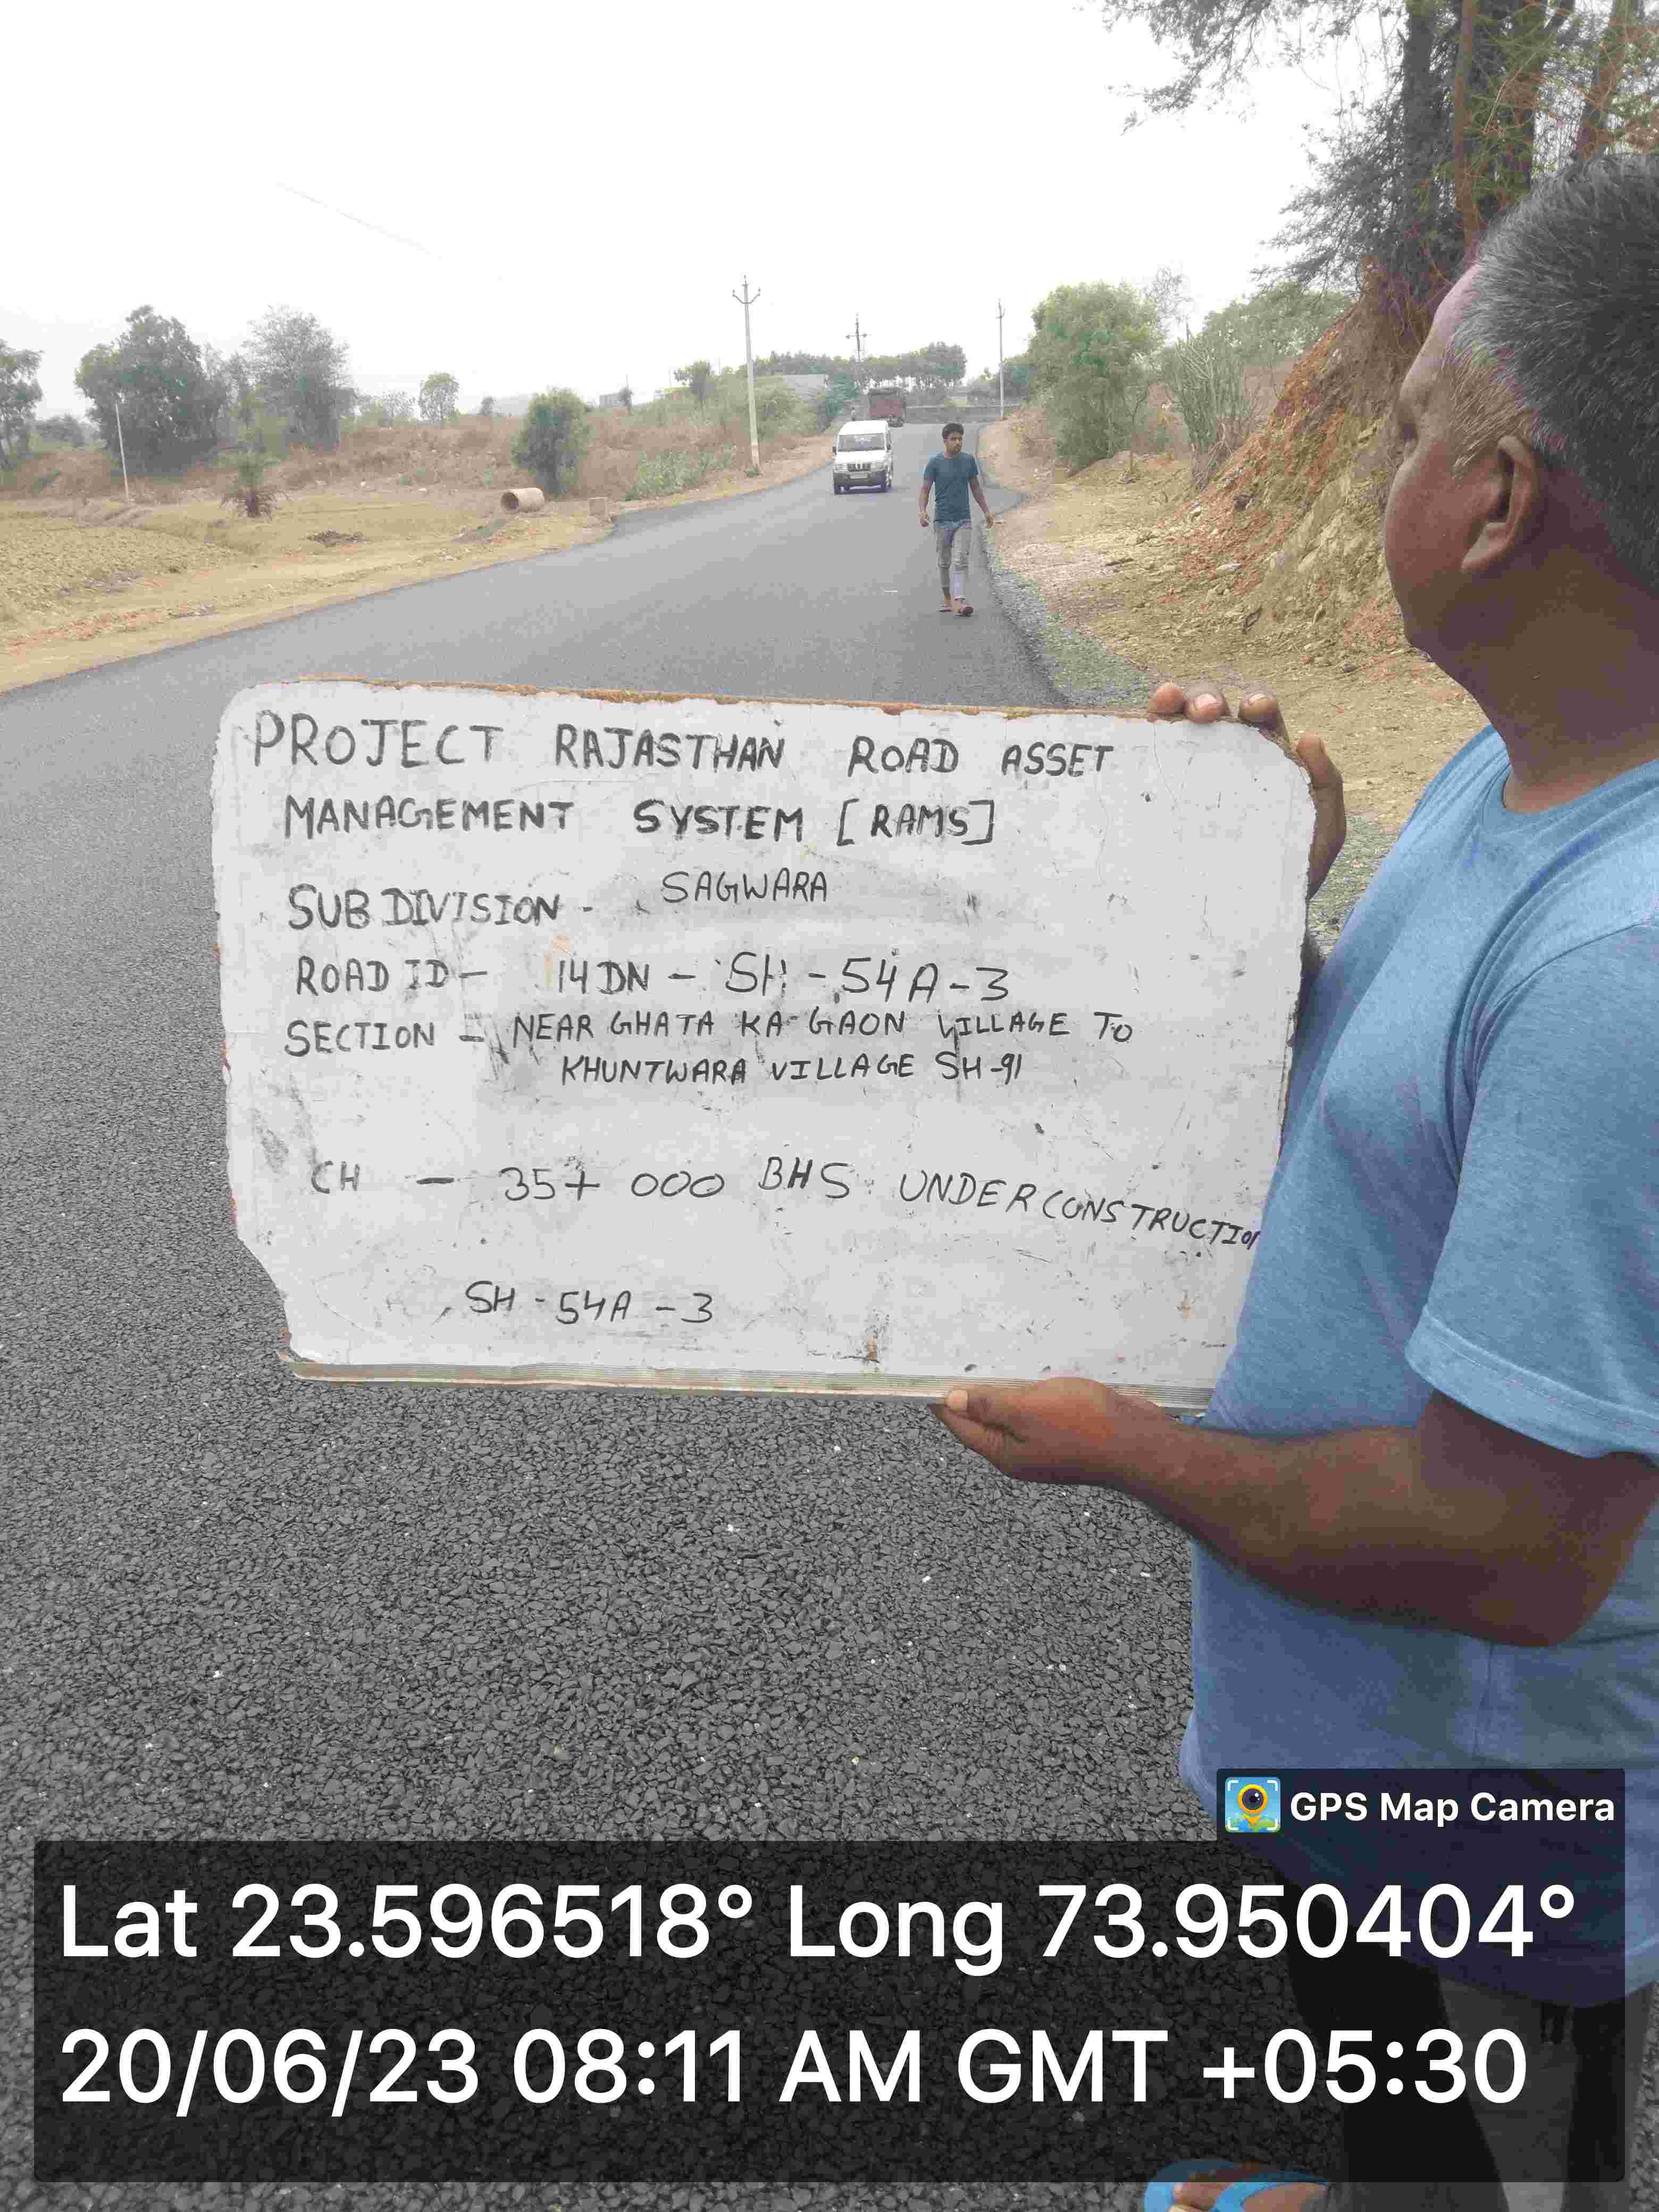 PROJECT RAJASTHAN ROAD ASSET
MANAGEMENT SYSTEM [RAMS]
SUB DIVISION - SAGWARA
ROAD ID - 14DN - SH - 54A-3
SECTION - NEAR GHATA KA GAON VILLAGE TO
KHUNTWARA VILLAGE SH-91
CH - 35+ 000 BHS UNDERCONSTRUCTION
SH - 54A - 3
GPS Map Camera
Lat 23.596518° Long 73.950404°
20/06/23 08:11 AM GMT +05:30